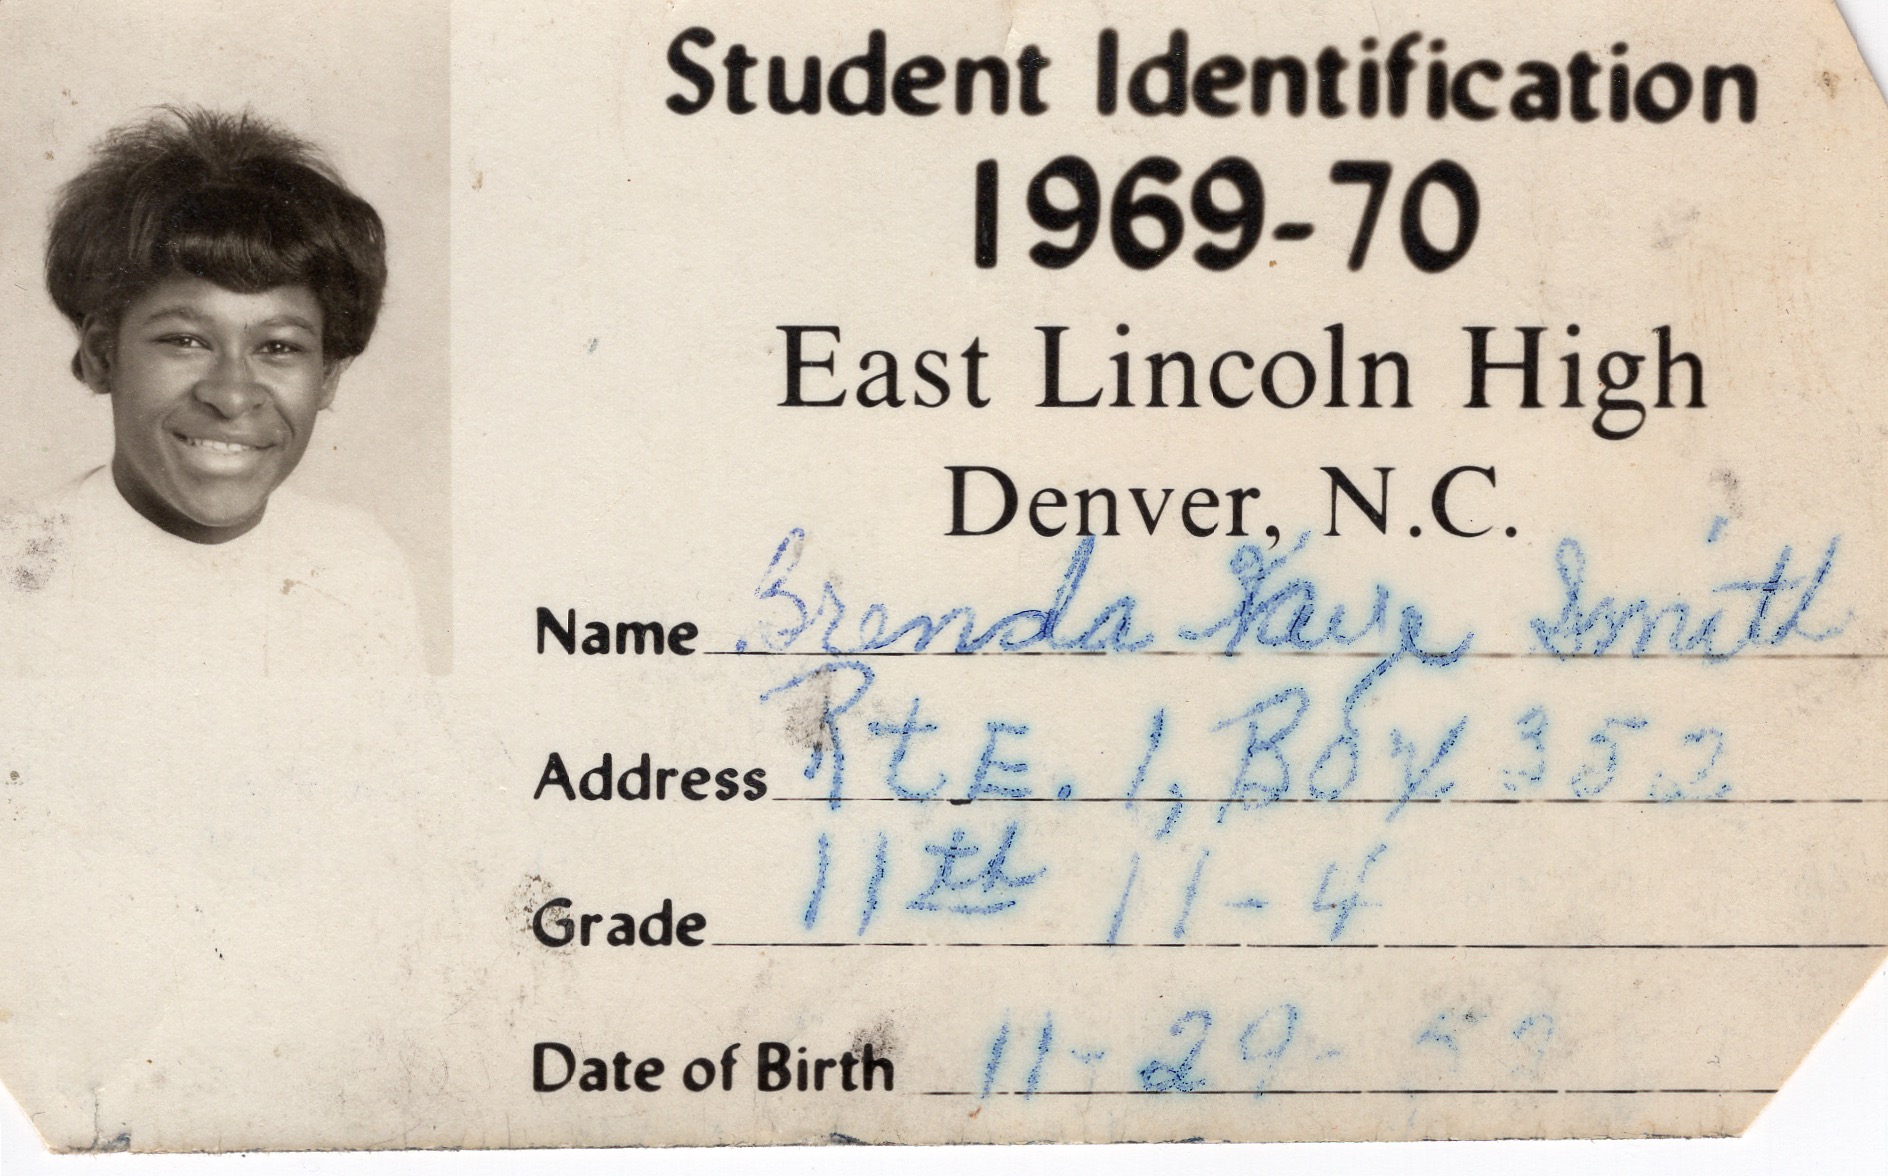 Student Identification
1969-70
East Lincoln High
Denver, N.C.
Name Brenda Faye Smith
Address RtE. 1, Box 352
Grade 11th 11-4
Date of Birth 11-29-52